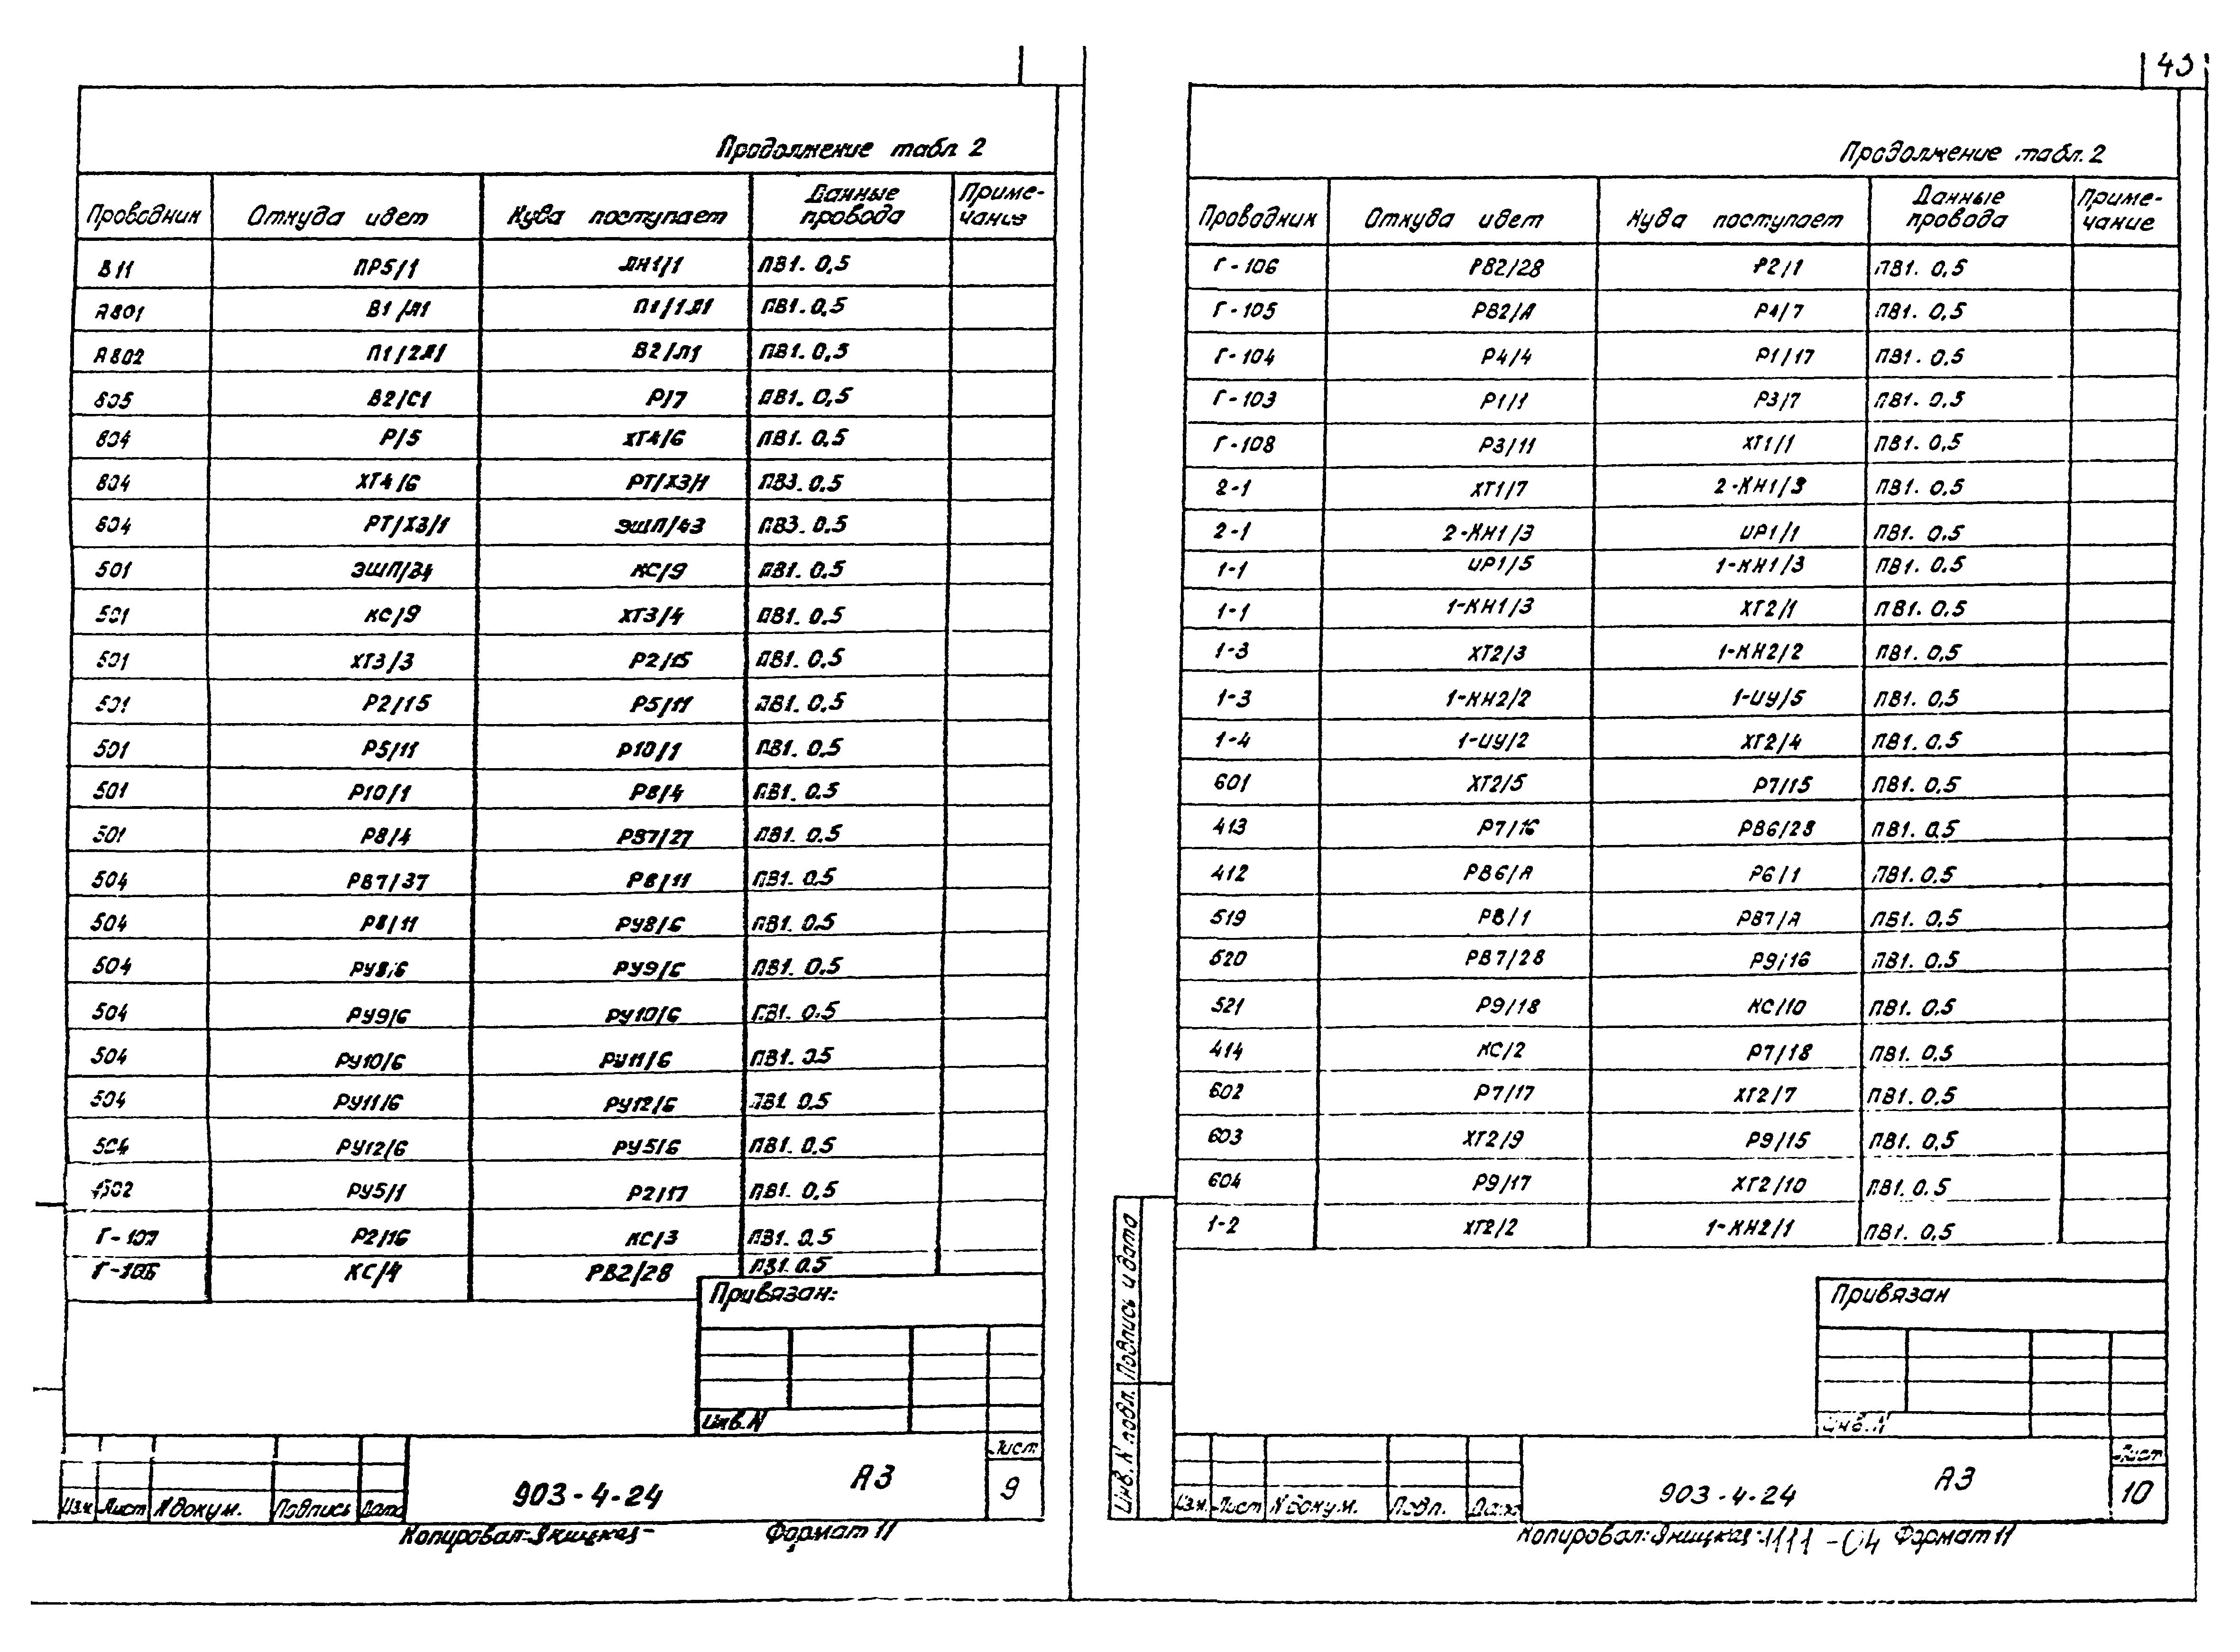 43
Продолжение табл 2
Проводник Откуда идет Куда поступает Данные провода Примечание
811 ПР5/1 ЛН1/1 ПВ1. 0,5
А801 В1/Л1 П1/1Л1 ПВ1. 0,5
А802 П1/2Л1 В2/Л1 ПВ1. 0,5
805 В2/С1 Р/7 ПВ1. 0,5
804 Р/5 ХТ4/6 ПВ1. 0,5
804 ХТ4/6 РТ/Х3/1 ПВ3. 0.5
804 РТ/Х3/1 ЭШП/43 ПВ3. 0.5
501 ЭШП/34 КС/9 ПВ1. 0.5
501 КС/9 ХТ3/4 ПВ1. 0.5
501 ХТ3/3 Р2/15 ПВ1. 0.5
501 Р2/15 Р5/11 ПВ1. 0.5
501 Р5/11 Р10/1 ПВ1. 0.5
501 Р10/1 Р8/4 ПВ1. 0.5
501 Р8/4 РВ7/27 ПВ1. 0.5
504 РВ7/37 Р8/11 ПВ1. 0.5
504 Р8/11 РУ8/6 ПВ1. 0.5
504 РУ8/6 РУ9/6 ПВ1. 0.5
504 РУ9/6 РУ10/6 ПВ1. 0.5
504 РУ10/6 РУ11/6 ПВ1. 0.5
504 РУ11/6 РУ12/6 ПВ1 0.5
504 РУ12/6 РУ5/6 ПВ1. 0.5
602 РУ5/1 Р2/17 ПВ1. 0,5
Г-107 Р2/16 КС/3 ПВ1. 0.5
Г-106 КС/4 РВ2/28 ПВ1. 0.5
Привязан:
Инв.N
Изм Лист N докум. Подпись Дата
903-4-24
А3
Лист
9
Копировал:Яницкая
Формат 11
Продолжение табл. 2
Проводник Откуда идет Куда поступает Данные провода Примечание
Г-106 РВ2/28 Р2/1 ПВ1. 0,5
Г-105 РВ2/А Р4/7 ПВ1. 0,5
Г-104 Р4/4 Р1/17 ПВ1. 0,5
Г-103 Р1/1 Р3/7 ПВ1. 0.5
Г-108 Р3/11 ХТ1/1 ПВ1. 0,5
2-1 ХТ1/7 2-КН1/3 ПВ1. 0.5
2-1 2-КН1/3 ИР1/1 ПВ1. 0.5
1-1 ИР1/5 1-КН1/3 ПВ1. 0.5
1-1 1-КН1/3 ХТ2/1 ПВ1. 0.5
1-3 ХТ2/3 1-КН2/2 ПВ1. 0,5
1-3 1-КН2/2 1-ИУ/5 ПВ1. 0,5
1-4 1-ИУ/2 ХТ2/4 ПВ1. 0.5
601 ХТ2/5 Р7/15 ПВ1. 0,5
413 Р7/16 РВ6/28 ПВ1. 0,5
412 РВ6/А Р6/1 ПВ1. 0.5
519 Р8/1 РВ7/А ПВ1. 0,5
520 РВ7/28 Р9/16 ПВ1. 0.5
521 Р9/18 КС/10 ПВ1. 0.5
414 КС/2 Р7/18 ПВ1. 0.5
602 Р7/17 ХТ2/7 ПВ1. 0.5
603 ХТ2/9 Р9/15 ПВ1. 0,5
604 Р9/17 ХТ2/10 ПВ1. 0. 5
1-2 ХТ2/2 1-КН2/1 ПВ1. 0,5
Подпись и дата
Инв. N подл.
Привязан
Инв.N
Изм. Лист N докум. Подп. Дата
903-4-24
А3
Лист
10
Копировал:Яницкая
1111-04
Формат 11